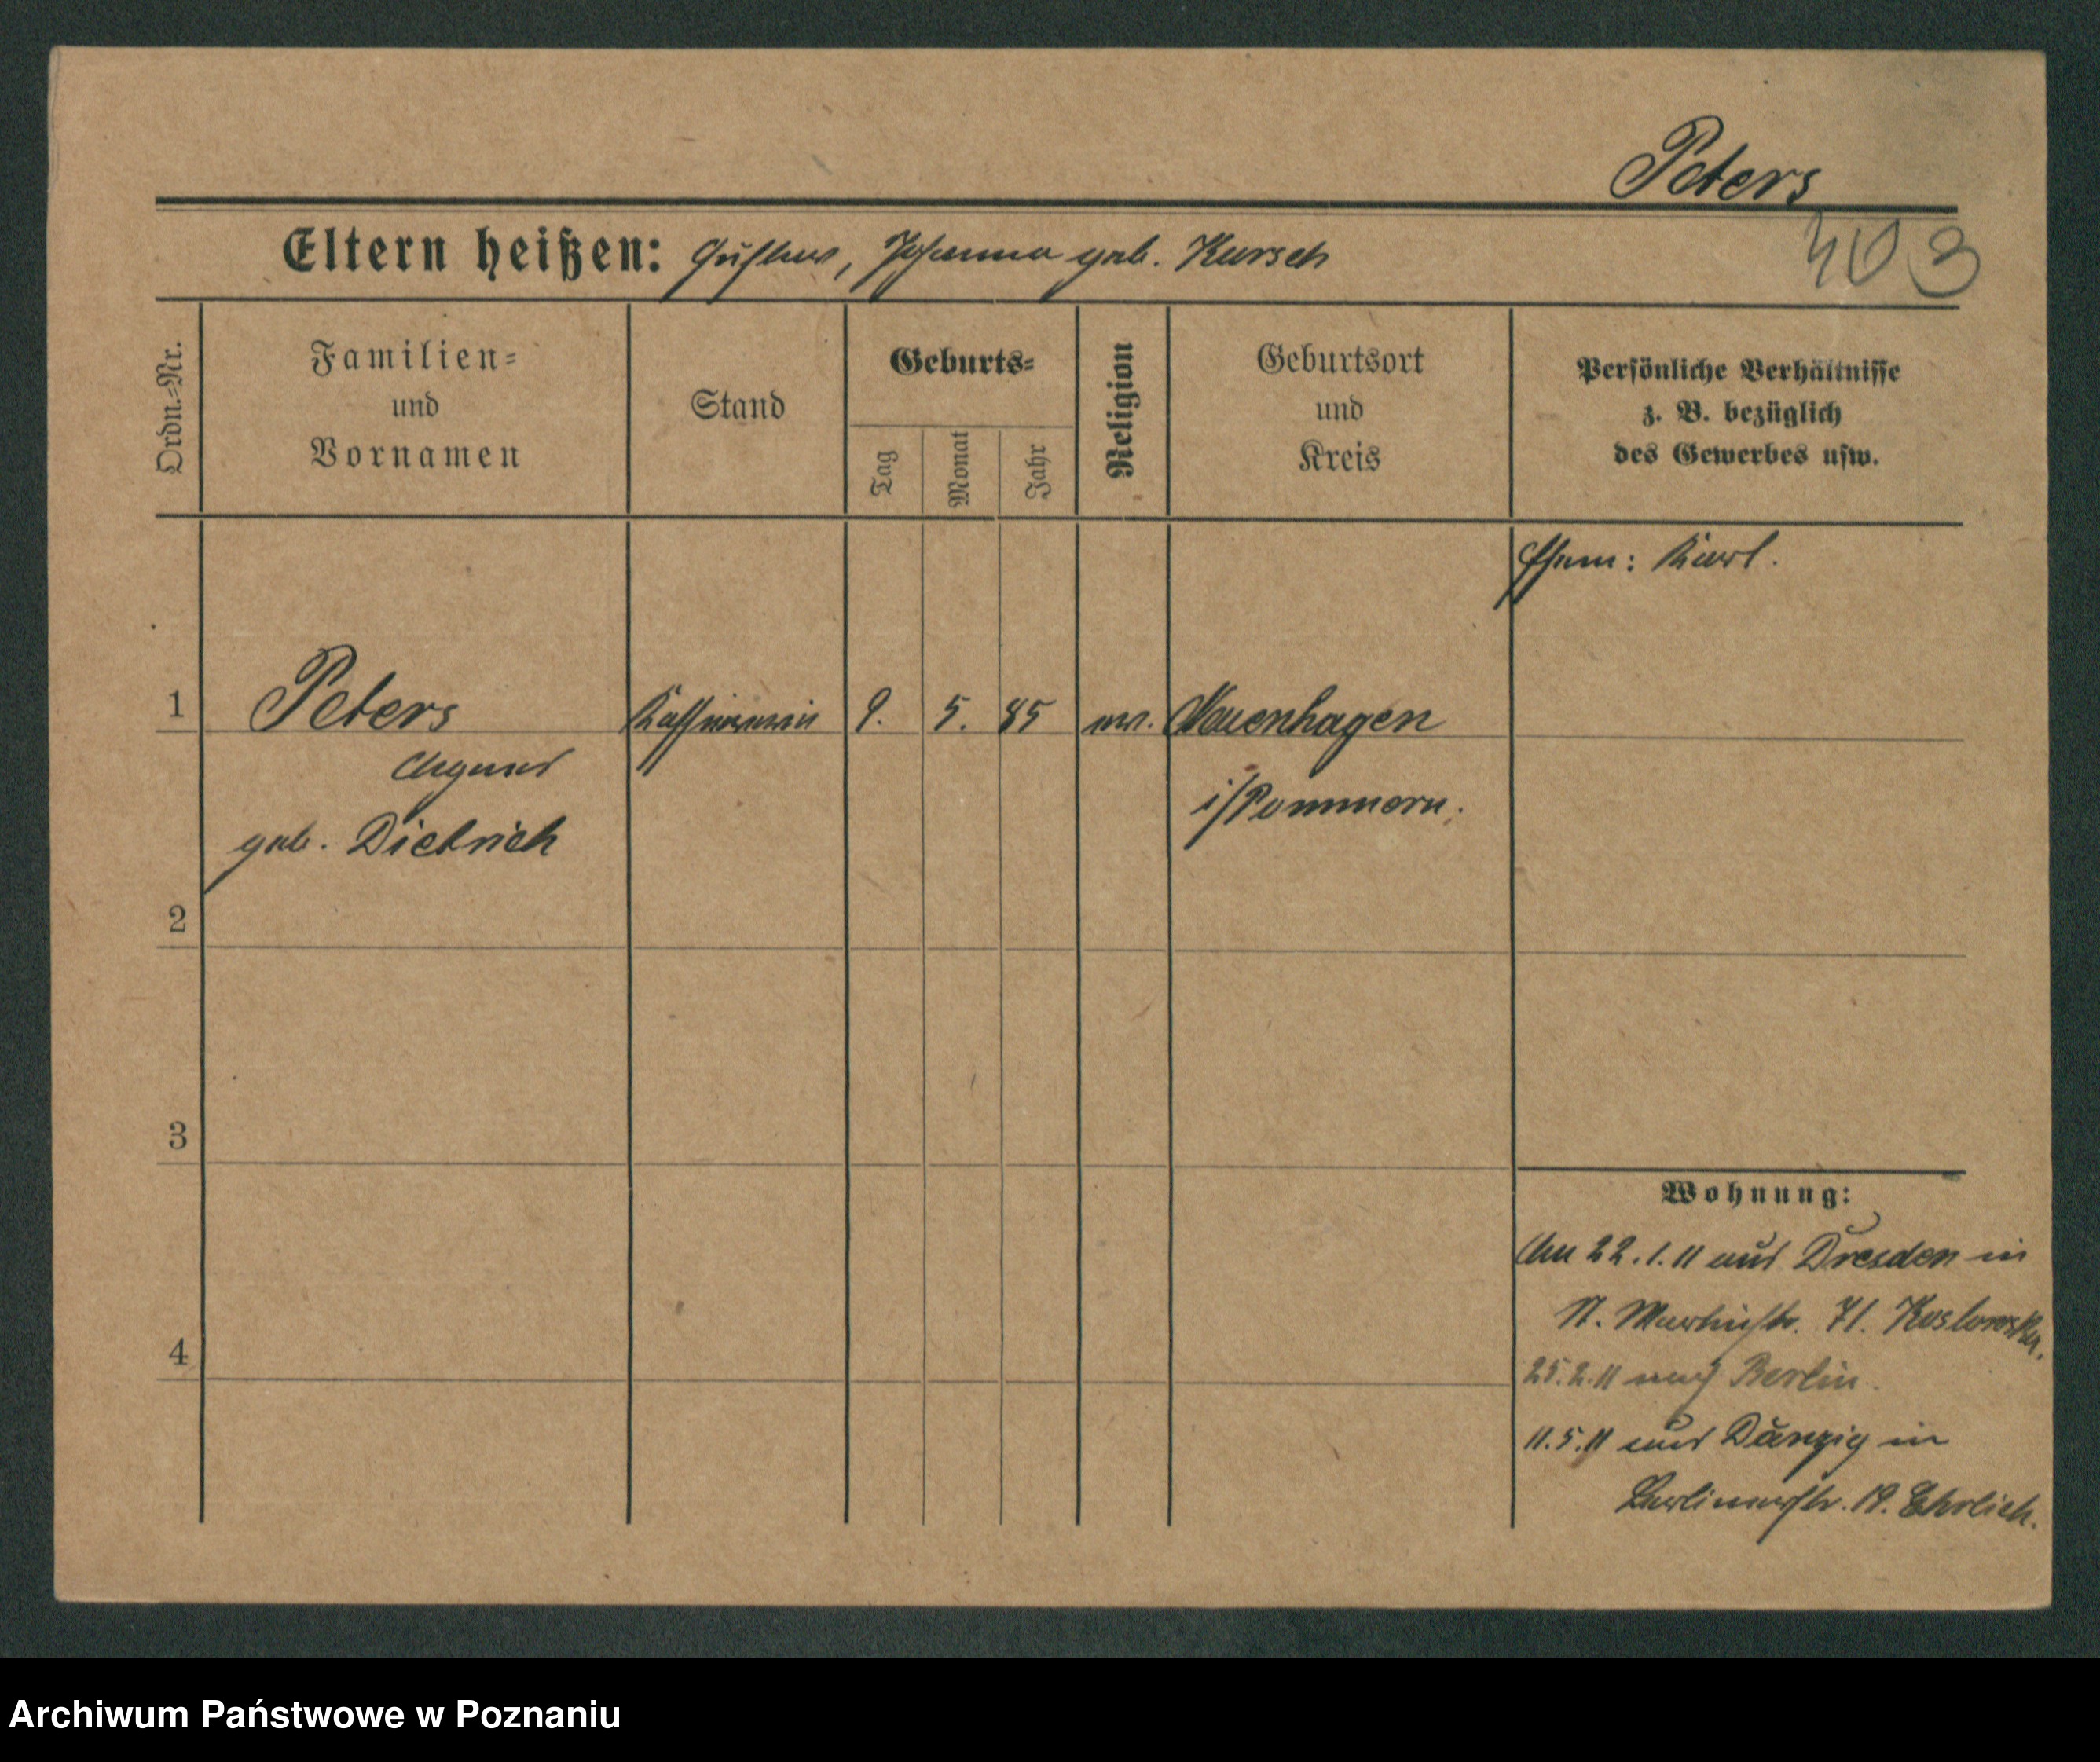 Peters
403
Eltern heißen: Gustav, Johanna geb. Kursch
Ordn.=Nr.
Familien=
und
Vornamen
Stand
Geburts=
Tag
Monat
Jahr
Religion
Geburtsort
und
Kreis
Persönliche Verhältnisse
z. B. bezüglich
des Gewerbes usw.
Ehem: Karl.
1 Peters Kassiererin 9. 5. 85 ev. Neuenhagen
i/Pommern.
geb. Dietrich
2
3
4
Wohnung:
An 22.1.11 aus Dresden in
St. Martinstr. 71. Koslowska.
25.2.11 nach Berlin.
11.5.11 aus Danzig in
Berlinerstr. 19. Ehrlich.
Archiwum Państwowe w Poznaniu